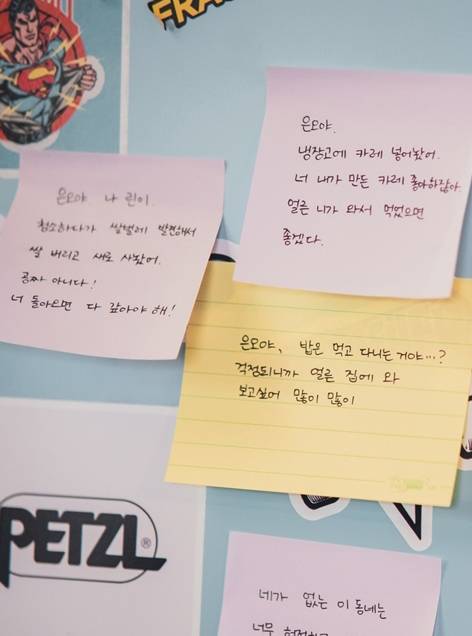 FRA
은오야.
냉장고에 카레 넣어놨어.
너 내가 만든 카레 좋아하잖아.
얼른 니가 와서 먹었으면
좋겠다.
은오야 나 린이.
청소하다가 쌀벌레 발견해서
쌀 버리고 새로 사놨어.
공짜 아니다!
너 돌아오면 다 갚아야 해!
은오야, 밥은 먹고 다니는 거야…?
걱정되니까 얼른 집에 와
보고싶어 많이 많이
PETZL®
네가 없는 이 동네는
너무